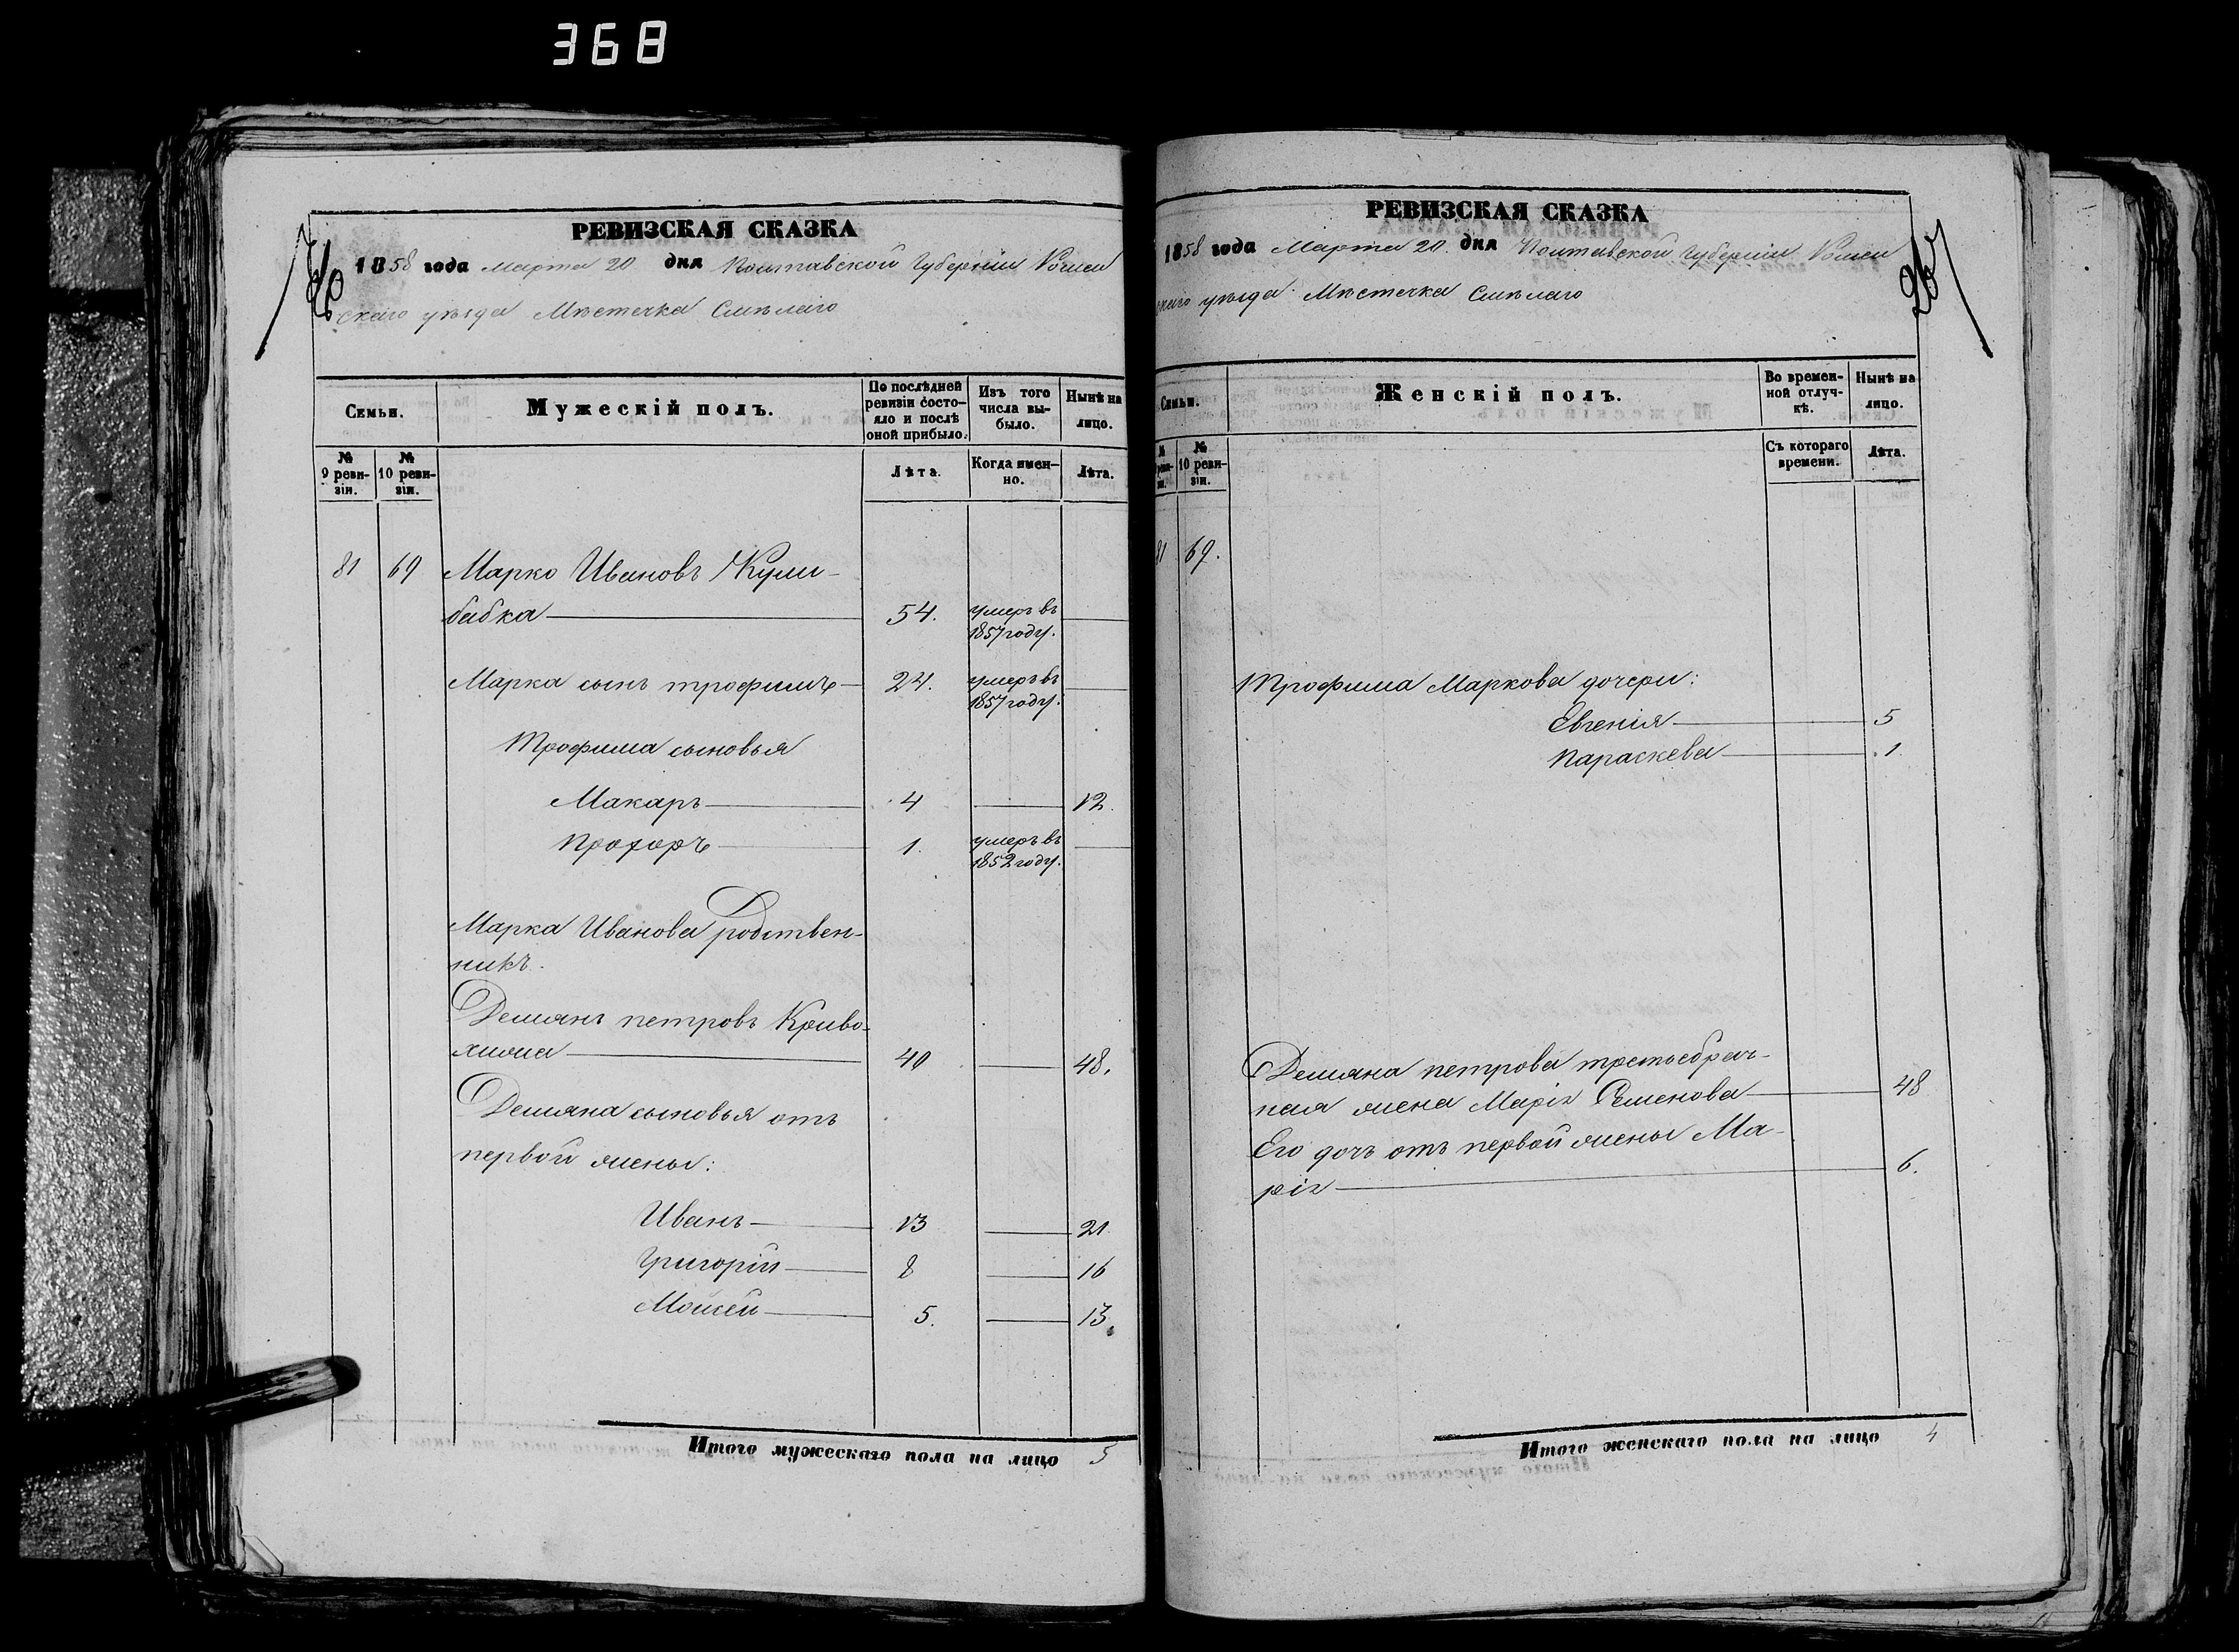 368
РЕВИЗСКАЯ СКАЗКА
1858 года Марта 20 дня Полтавской Губерніи Ромен
скаго уѣзда Мѣстечка Смѣлаго
Семьи.
Мужескій полъ.
По послѣдней ревизіи состояло и послѣ оной прибыло.
Изъ того числа выбыло.
Нынѣ на лицо.
№ 9 ревизіи.
№ 10 ревизіи.
Лѣта.
Когда именно.
Лѣта.
81 69 Марко Ивановъ Кули-
бабка 54. умеръ въ 1857 году.
Марка сынъ трофимъ 24. умеръ въ 1857 году.
Трофима сыновья
Макаръ 4 12.
Прохоръ 1. умеръ въ 1852 году.
Марка Иванова родствен-
никъ.
Демянъ петровъ Криво-
40 48.
Демяна сыновья отъ
первой жены:
Иванъ 13 21.
Григорій 8 16
Мойсей 5. 13.
Итого мужескаго пола на лицо 5
РЕВИЗСКАЯ СКАЗКА
1858 года Марта 20. дня Полтавской Губерніи Ромен
скаго уѣзда Мѣстечка Смѣлаго
267
Семьи.
Женскій полъ.
Во временной отлучкѣ.
Нынѣ на лицо.
№ 10 ревизіи.
Съ котораго времени.
Лѣта.
81 69.
Трофима Маркова дочери:
Евгенія 5
Параскева 1.
Демяна петрова третьебрач-
ная жена Марія Семенова 48
Его дочь отъ первой жены Ма-
рія 6.
Итого женскаго пола на лицо 4